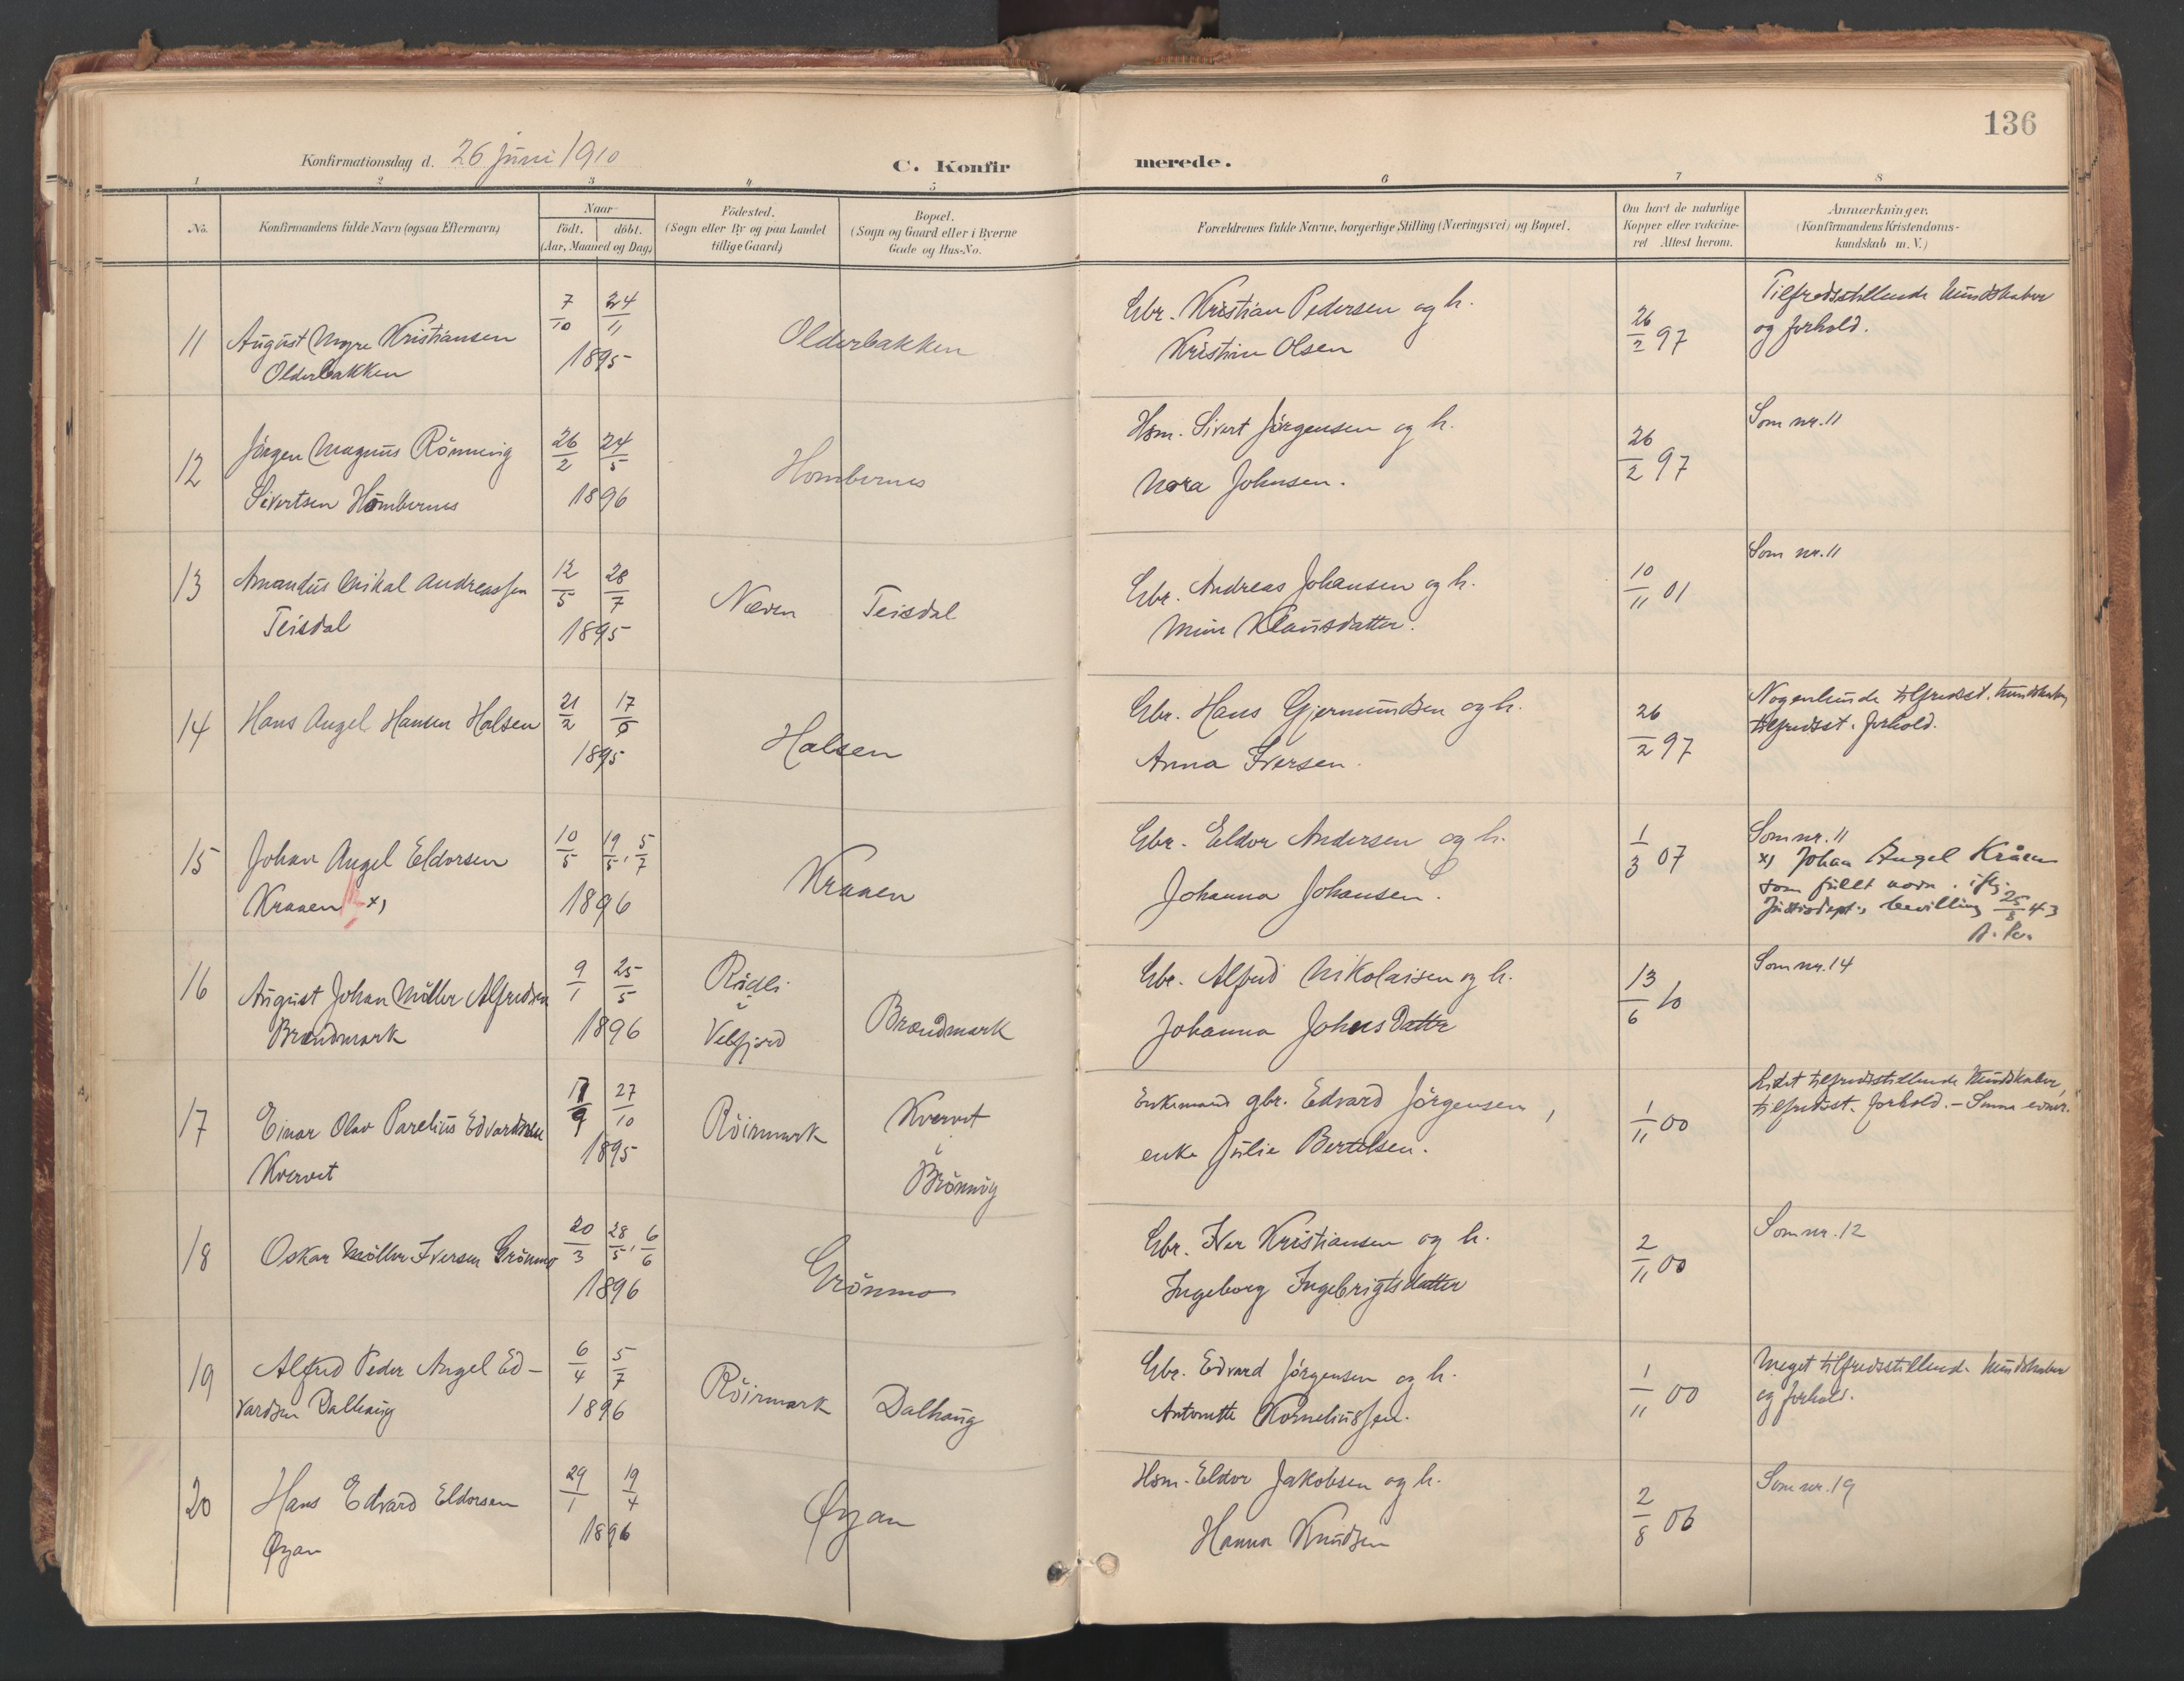 136
Konfirmationsdag d. 26 juni 1910
C. Konfirmerede.
1 2 3 4 5 6 7 8
No.
Konfirmandens fulde Navn (ogsaa Efternavn)
Naar
födt. döbt.
(Aar, Maaned og Dag)
Födested.
(Sogn eller By og paa Landet
tillige Gaard)
Bopæl.
(Sogn og Gaard eller i Byerne
Gade og Hus-No.
Forældrenes fulde Navne, borgerlige Stilling (Næringsvei) og Bopæl.
Om havt de naturlige
Kopper eller vakcine-
ret Attest herom.
Anmærkninger.
(Konfirmandens Kristendoms-
kundskab m. V.)
11 August Myre Kristiansen
Olderbakken
7/10 24/11
1895
Olderbakken
Gbr. Kristian Pedersen og h.
Kristine Olsen
26/2 97
Tilfredsstillende kundskaber
og forhold.
12 Jörgen Magnus Rönning
Sivertsen Hombernes
26/2 24/5
1896
Hombernes
Hsm. Sivert Jörgensen og h.
Nora Johnsen.
26/2 97
Som nr. 11
13 Amandus Mikal Andreassen
Teisdal
12/5 28/7
1895
Næven Teisdal
Gbr. Andreas Johansen og h.
Mine Klausdatter.
10/11 01
Som nr. 11
14 Hans Angel Hansen Halsen
21/2 17/6
1895
Halsen
Gbr. Hans Gjermundsen og h.
Anna Iversen.
26/2 97
Nogenlunde tilfredsst. kundskaber
tilfredsst. forhold.
15 Johan Angel Eldorsen
Kraaen x)
10/5 19/5, 5/7
1896
Kraaen
Gbr. Eldor Andersen og h.
Johanna Johansen.
1/3 07
Som nr. 11
x) Johan Angel Kråen
som fullt navn. iflg.
Justisdept.s bevilling 25/3 43
16 August Johan Möller Alfredsen
Brændmark
9/1 25/5
1896
Rödli
i
Velfjord
Brændmark
Gbr. Alfred Nikolaisen og h.
Johanna Johnsdatter
13/6 10
Som nr. 14
17 Einar Olav Parelius Edvardsen
Kvervet
17/9 27/10
1895
Röirmark
Kvervet
i
Brönnöy
Enkemand gbr. Edvard Jörgensen,
enke Julie Bertelsen.
1/11 00
Lidet tilfredsstillende kundskaber,
tilfredsst. forhold. – Smaa evner.
18 Oskar Möller Iversen Grönmo
20/3 28/5, 6/6
1896
Grönmo
Gbr. Iver Kristiansen og h.
Ingeborg Ingebrigtsdatter
2/11 00
Som nr. 12
19 Alfred Peder Angel Ed-
vardsen Dalhaug
6/4 5/7
1896
Röirmark Dalhaug
Gbr. Edvard Jörgensen og h.
Antonette Korneliussen.
1/11 00
Meget tilfredsstillende kundskaber
og forhold.
20 Hans Edvard Eldorsen
Øyan
29/1 19/4
1896
Øyan
Hsm. Eldor Jakobsen og h.
Hanna Knudsen
2/8 06
Som nr. 19